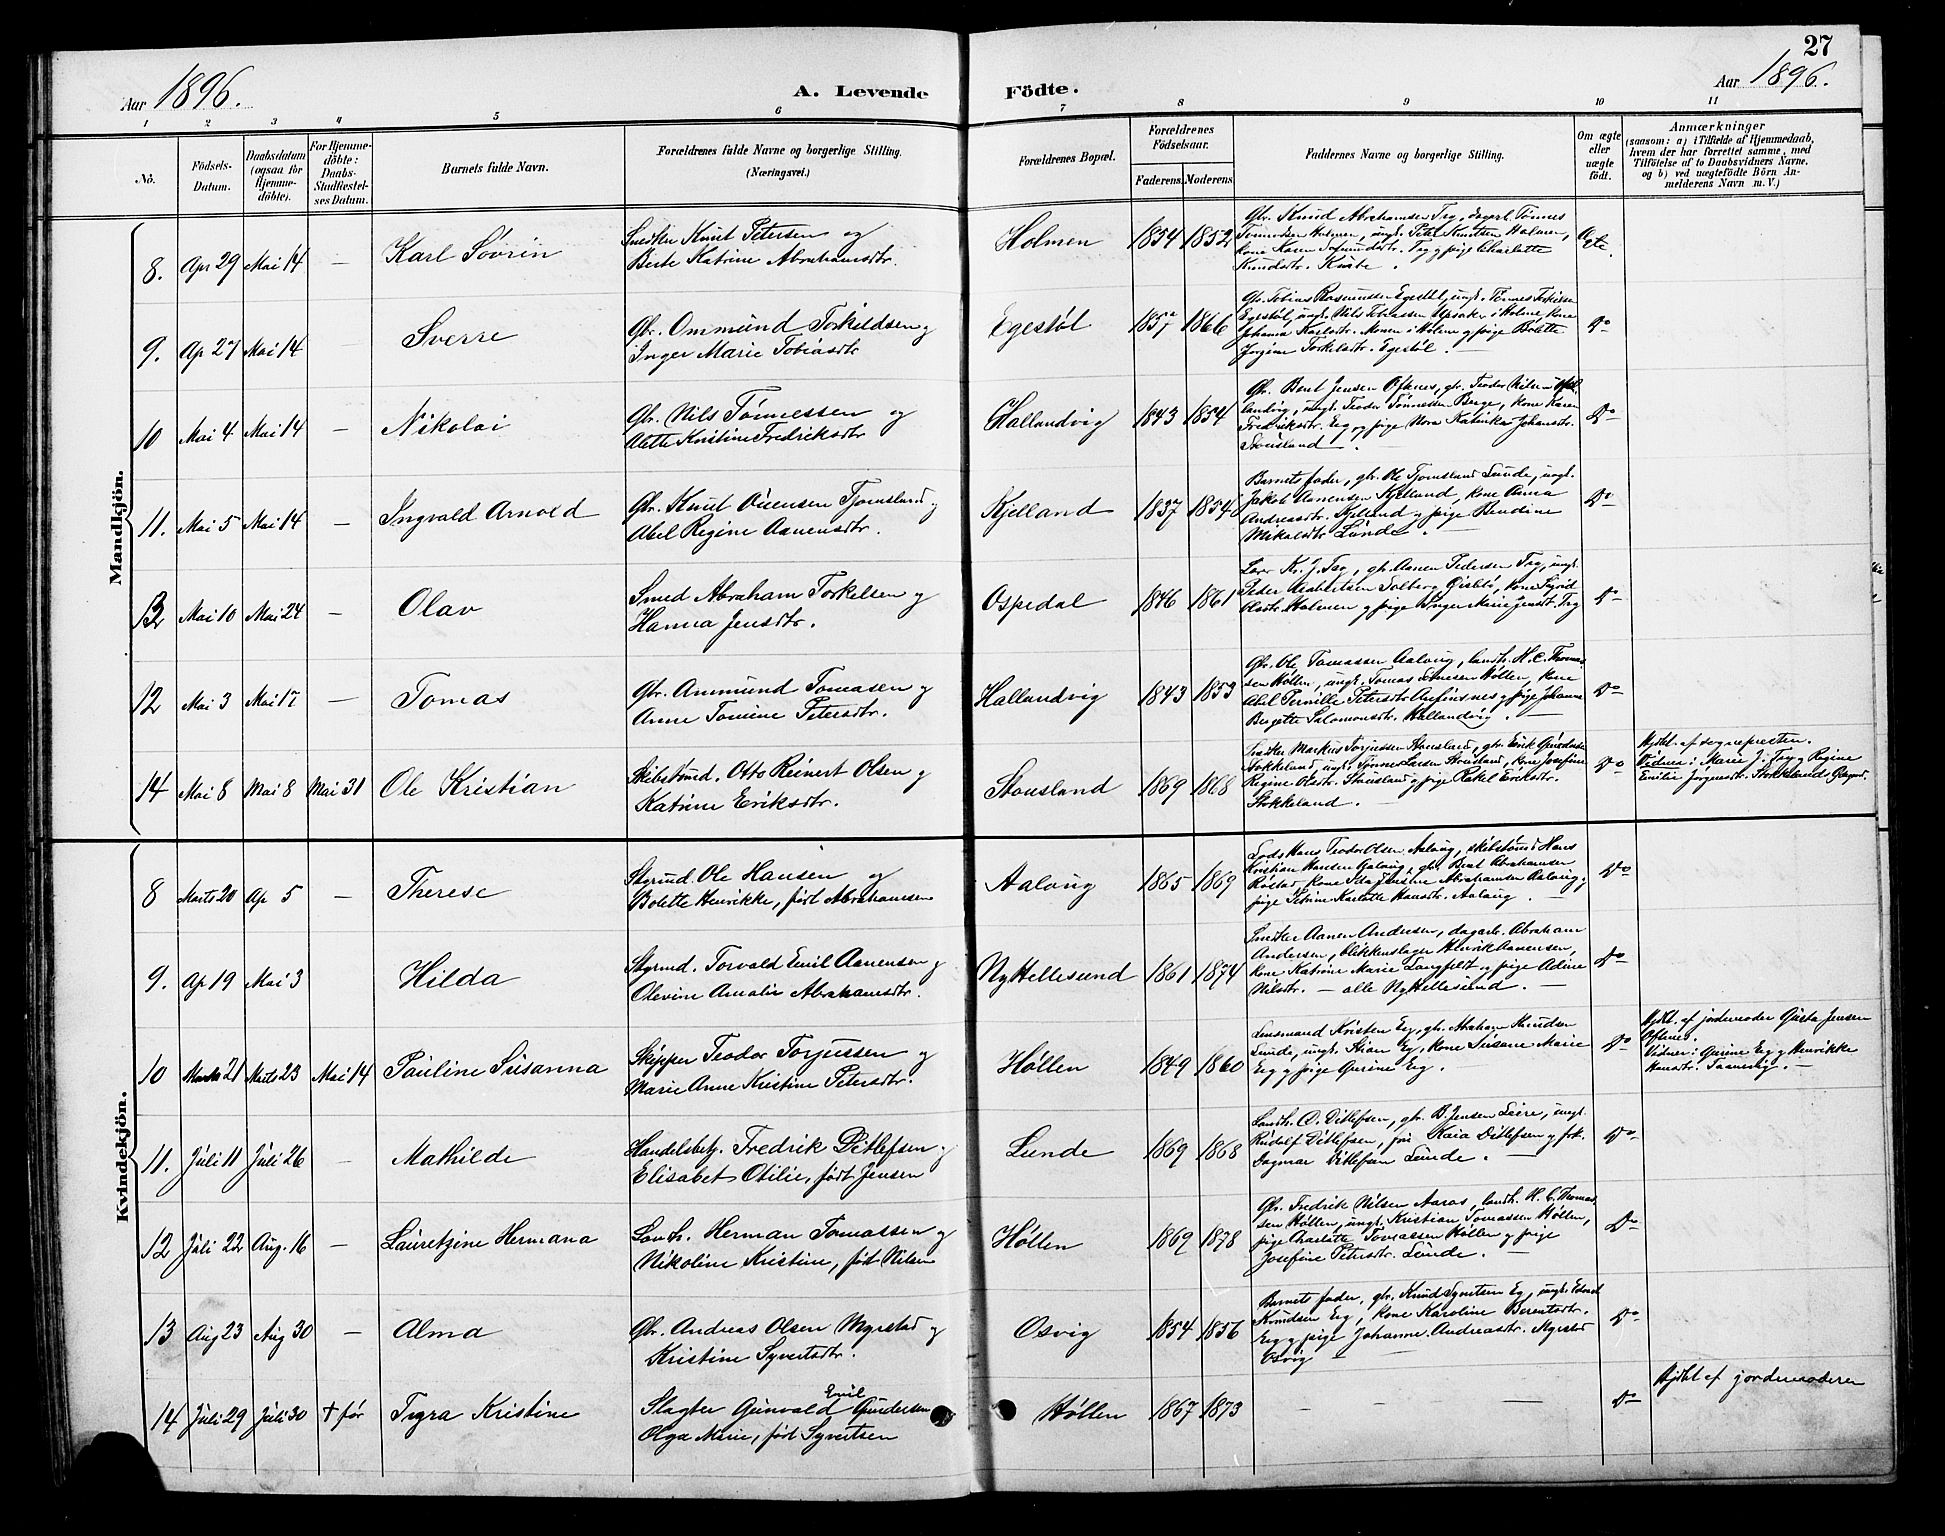 27
Aar 1896.
A. Levende Födte.
Aar 1896.
1 2 3 4 5 6 7 8 9 10 11
No.
Födsels-Datum.
Daabsdatum (ogsaa for Hjemme-döbte).
For Hjemme-döbte: Daabs-Stadfæstel-ses Datum.
Barnets fulde Navn.
Forældrenes fulde Navne og borgerlige Stilling.
(Næringsvei.)
Forældrenes Bopæl.
Forældrenes Födselsaar.
Faderens. Moderens.
Faddernes Navne og borgerlige Stilling.
Om ægte eller uægte födt.
Anmærkninger
(saasom: a) i Tilfælde af Hjemmedaab, hvem der har forrettet samme, med Tilföielse af to Daabsvidners Navne, og b) ved uægtefödte Börn An-melderens Navn m. V.)
Mandkjön.
8. Apr 29 Mai 14 — Karl Sövrin
Snedker Knut Petersen og
Berte Katrine Abrahamsdtr.
Holmen 1854 1852
Gbr. Knud Abrahamsen Try, dagarb. Tönnes
Tönnesen Holmen, ungk. Peter Knudsen Holmen,
kone Karen Try og pige Charlotte
Knudsdtr. Kvate.
Ægte.
9. Ap 27 Mai 14 Sverre
Gbr. Ommund Torkildsen og
Inger Marie Tobiasdtr
Egestöl 1857 1866
Gbr. Tobias Rasmussen Egestöl, ungk. Tönnes Torkilsen
Egestöl, ungk. Nils Tobiassen Upsaker i Holme, kone
Johanna Karlsdtr. Monen i Holme og pige Bolette
Jorgine Torkelsdtr. Egestöl. —
Do
10 Mai 4 Mai 14 — Nikolai
Gbr. Nils Tönnessen og
Aette Kristine Fredriksdtr
Hallandvig 1843 1854
Gbr. Bent Jensen Öftenes, gbr. Teodor Nilsen Hallandvig, ungk. Teodor Tönnessen Berge, kone Karen
Fredriksdtr. Eeg og pige Nora Katinka Johansdtr.
Stousland.
Do
11. Mai 5 Mai 14 — Ingvald Arnold
Gbr. Knut Ouensen Tjomsland og
Abel Regine Aanensdtr.
Kjelland 1837 1854
Barnets fader, gbr. Ole Tjomsland Lunde, ungk.
Jakob Aanensen Kjelland, kone Anna
Andreasdtr. Kjelland og pige Bendine
Mikalsdtr Lunde. —
Do
13 Mai 10 Mai 24 — Olav
Smed Abraham Torkelsen og
Hanna Jensdtr.
Ospedal 1846 1861
Lærer K. J. Try, gbr. Aanen Pedersen Try, ungk.
Peder Solberg Öislebö, kone Sigrid
Olsdtr. Holmen og pige Inger Marie Jensdtr. Try
Do
12 Mai 3 Mai 17 — Tomas
Gbr. Ammund Tomasen og
Anne Tomine Petersdtr.
Hallandvig 1843 1853
Gbr. Ole Tomassen Aaloug, landh. H. C. Thomassen Höllen, ungk. Tomas Höllen, kone
Abel Pernille Petersdtr Aufinsnes og pige Johanne
Bergette Salomonsdtr. Hallandvig. —
Do
14 Mai 8 Mai 8 Mai 31 Ole Kristian
Skibstömd. Otto Reinert Olsen og
Katrine Eriksdtr.
Stousland 1869 1868
Snedker Markus Torjussen Stousland, gbr. Erik
Stokkeland, ungk. Tönnes Larsen Stousland, kone Josefine
Regine Olsdtr. Stousland og pige Rakel Eriksdtr.
Stokkeland. —
Do
Hjdbt. af sognepresten.
Vidner: Marie J. Try og Regine
Emilie Jorgensdtr. Stokkelands
Kvindekjön.
8 Marts 20 Ap 5 — Therese
Styrmd. Ole Hansen og
Bolette Henrikke, født Abrahamsen
Aaloug 1865 1869
Lods Hans Teodor Olsen Aaloug, skibstömd Hans
Kristian Hansen Aaloug, gbr. Bent Abrahamsen
Röstad, kone Ida Josefine Abrahamsen Aaloug og
pige Petrine Karlotte Hansdtr. Aaloug. —
Do
9. Ap 19 Mai 3 Hilda
Styrmd. Torvald Emil Aanensen og
Olevine Amalie Abrahamsdtr.
Ny Hellesund 1861 1874
Snedker Aanen Andersen, dagarb. Abraham
Andersen, blikkenslager Henrik Aanensen,
kone Katrine Marie Langfeldt og pige Adine
Nilsdtr. — alle Ny Hellesund. —
Do
10 Marts 21 Marts 23 Mai 14 Pauline Susanna
Skipper Teodor Torjussen og
Marie Anne Kristine Petersdtr.
Höllen 1849 1860
Lensmand Kristen Eeg, gbr. Abraham Knudsen
Lunde, ungk. Stian Eeg, kone Susane Marie
Eeg og pige Gurine Eeg.
Do
Hjdbt. af jordemoder Gusta Jensen
Öftenes.
Vidner: Gurine Eeg og Henrikke
Hansdtr. Taanevig. —
11. Juli 11 Juli 26 — Mathilde
Handelsbetj. Fredrik Ditlefsen og
Elisabet Otilie, født Jensen
Lunde 1869 1868
Landh. O. Ditlefsen, gbr. B. Jensen Leire, ungk.
Rudolf Ditlefsen, frk. Kaia Ditlefsen og frk.
Dagmar Ditlefsen Lunde. —
Do
12 Juli 22 Aug. 16 — Lauretzine Hermana
Landh. Herman Tomassen og
Nikoline Kristine, født Nilsen
Höllen 1869 1878
Gbr. Fredrik Nilsen Aaros, landh. H. C. Thomassen Höllen, ungk. Kristian Tomassen Höllen,
pige Charlotte Tomassen Höllen og pige
Josefine Petersdtr. Lunde. —
Do
13 Aug 23 Aug 30 — Alma
Gbr. Andreas Olsen Myrstad og
Kristine Syvertsdtr.
Osvig 1854 1856
Barnets fader, gbr. Knud Syvertsen Eeg, ungk. Edvard
Knudsen Eeg, kone Karoline Berentsdtr.
Eeg og pige Johanne Andreasdtr. Myrstad
Osvig — —
Do
14 Juli 29 Juli 30 † før Tygra Kristine
Slagter Gunvald Emil Gundersen
Olga Marie, født Syvertsen
Höllen 1867 1873 — — —
Do
Hjdbt af jordemoderen